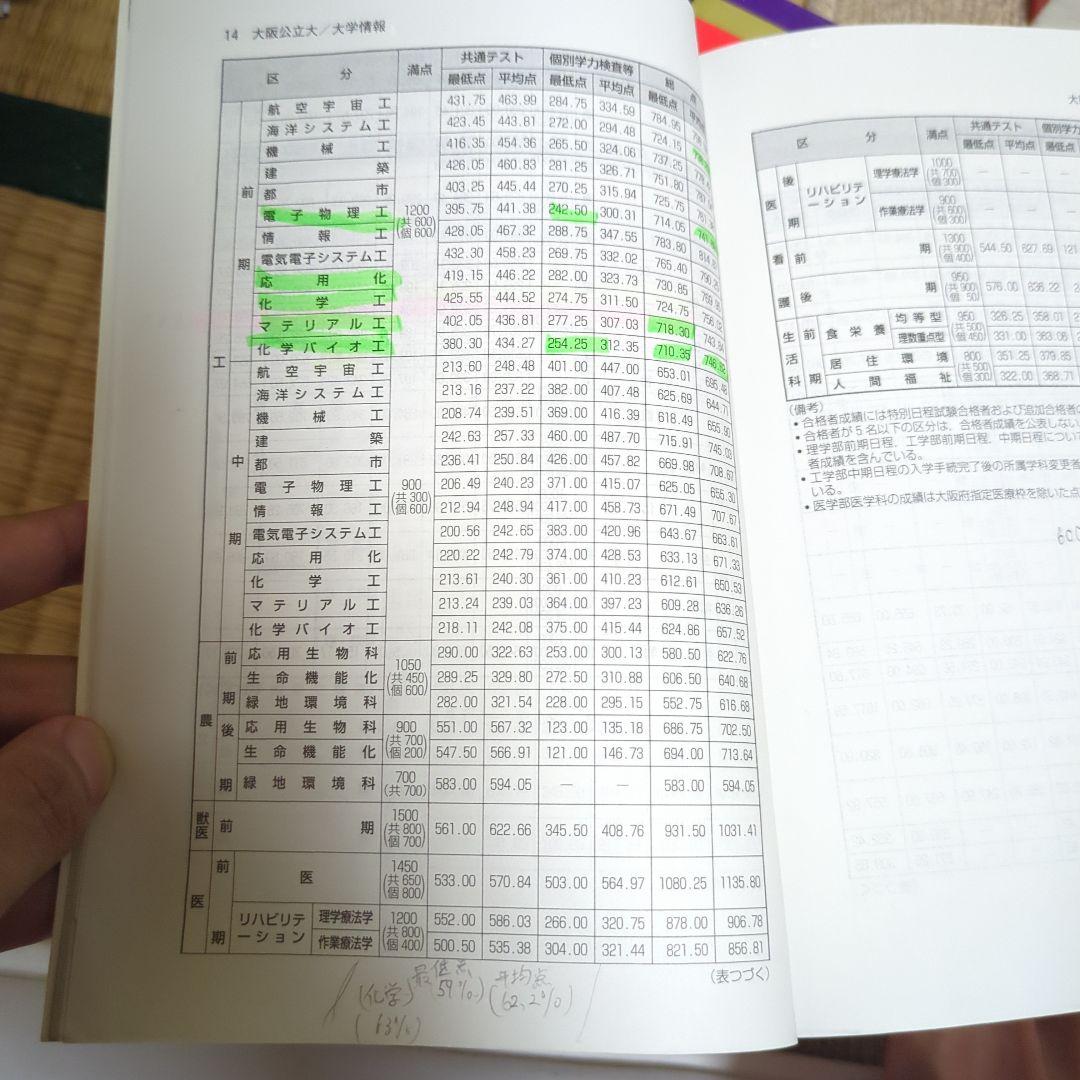 14 大阪公立大／大学情報
区分 満点 共通テスト 個別学力検査等 総点
最低点 平均点 最低点 平均点 最低点
工 前期 1200 (共600 個600)
航空宇宙工 431.75 463.99 284.75 334.59 784.95
海洋システム工 423.45 443.81 272.00 294.48 724.15
機械工 416.35 454.36 265.50 324.06 737.25
建築 426.05 460.83 281.25 326.71 751.80
都市 403.25 445.44 270.25 315.94 725.75
電子物理工 395.75 441.38 242.50 300.31 714.05
情報工 428.05 467.32 288.75 347.55 783.80
電気電子システム工 432.30 458.23 269.75 332.02 765.40
応用化 419.15 446.22 282.00 323.73 730.85
化学工 425.55 444.52 274.75 311.50 724.75
マテリアル工 402.05 436.81 277.25 307.03 718.30
化学バイオ工 380.30 434.27 254.25 312.35 710.35
中期 900 (共300 個600)
航空宇宙工 213.60 248.48 401.00 447.00 653.01 695.48
海洋システム工 213.16 237.22 382.00 407.48 625.69 644.71
機械工 208.74 239.51 369.00 416.39 618.49 655.90
建築 242.63 257.33 460.00 487.70 715.91 745.03
都市 236.41 250.84 426.00 457.82 669.98 708.67
電子物理工 206.49 240.23 371.00 415.07 625.05 655.30
情報工 212.94 248.94 417.00 458.73 671.49 707.67
電気電子システム工 200.56 242.65 383.00 420.96 643.67 663.61
応用化 220.22 242.79 374.00 428.53 633.13 671.33
化学工 213.61 240.30 361.00 410.23 612.61 650.53
マテリアル工 213.24 239.03 364.00 397.23 609.28 636.26
化学バイオ工 218.11 242.08 375.00 415.44 624.86 657.52
農 前期 1050 (共450 個600)
応用生物科 290.00 322.63 253.00 300.13 580.50 622.76
生命機能化 289.25 329.80 272.50 310.88 606.50 640.68
緑地環境科 282.00 321.54 228.00 295.15 552.75 616.68
後期 900 (共700 個200)
応用生物科 551.00 567.32 123.00 135.18 686.75 702.50
生命機能化 547.50 566.91 121.00 146.73 694.00 713.64
緑地環境科 700 (共700) 583.00 594.05 — — 583.00 594.05
獣医 前期 1500 (共800 個700) 561.00 622.66 345.50 408.76 931.50 1031.41
医 前期 医 1450 (共650 個800) 533.00 570.84 503.00 564.97 1080.25 1135.80
リハビリテーション 1200 (共800 個400)
理学療法学 552.00 586.03 266.00 320.75 878.00 906.78
作業療法学 500.50 535.38 304.00 321.44 821.50 856.81
(表つづく)
最低点 平均点
(化学) 59%) (62.2%)
(63%)
区分 満点 共通テスト
最低点 平均点 最低点
医 後期 リハビリテーション 理学療法学 1000 (共700 個300) — —
作業療法学 900 (共600 個300) — —
看護 前期 1300 (共900 個400) 544.50 827.69
後期 950 (共900 個50) 576.00 836.22
生活科 前期 食栄養 均等型 950 (共500 個450) 326.25 358.01
理数重点型 331.00 363.06
居住環境 800 (共500 個300) 351.25 379.85
人間福祉 322.00 368.71
(備考)
•合格者成績には特別日程試験合格者および追加合格者
•合格者が5名以下の区分は、合格者成績を公表しない
•理学部前期日程、工学部前期日程、中期日程につい
者成績を含んでいる。
•工学部中期日程の入学手続完了後の所属学科変更
いる。
•医学部医学科の成績は大阪府指定医療枠を除いた点